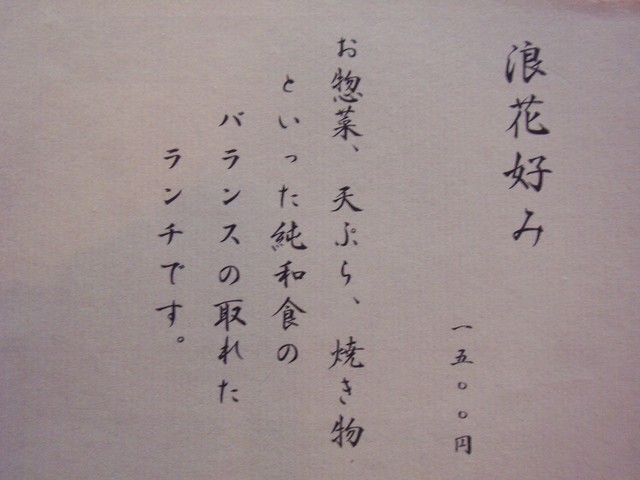 浪花好み
一五〇〇円
お惣菜、天ぷら、焼き物、
といった純和食の
バランスの取れた
ランチです。